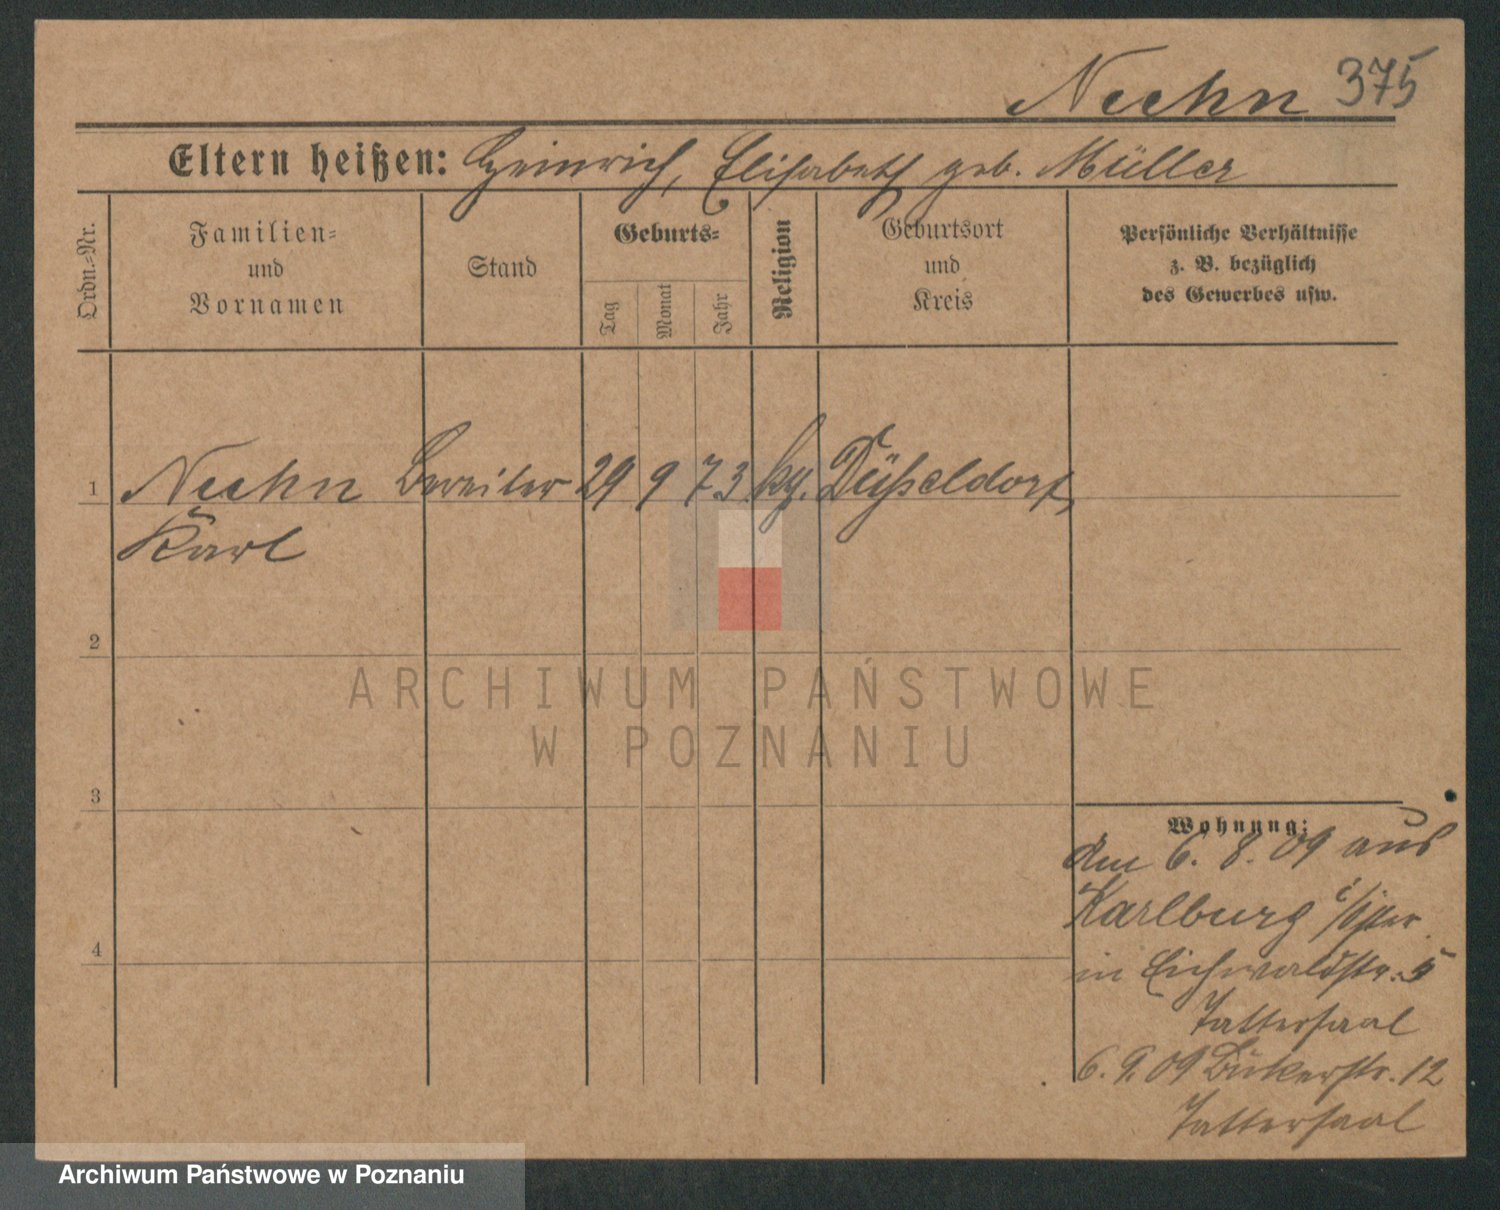 Neehn 375
Eltern heißen: Heinrich, Elisabeth geb. Müller
Ordn.-Nr.
Familien-
und
Vornamen
Stand
Geburts-
Tag
Monat
Jahr
Religion
Geburtsort
und
Kreis
Persönliche Verhältnisse
z. B. bezüglich
des Gewerbes usw.
1 Neehn Bereiter 29 9 73 kg. Düsseldorf
Karl
2
3
4
Wohnung:
am 6. 8. 09 aus
Karlburg
in Eichwaldstr. 5
Tattersaal
6. 9. 09 Bukerstr. 12
Tattersaal
ARCHIWUM PAŃSTWOWE
W POZNANIU
Archiwum Państwowe w Poznaniu